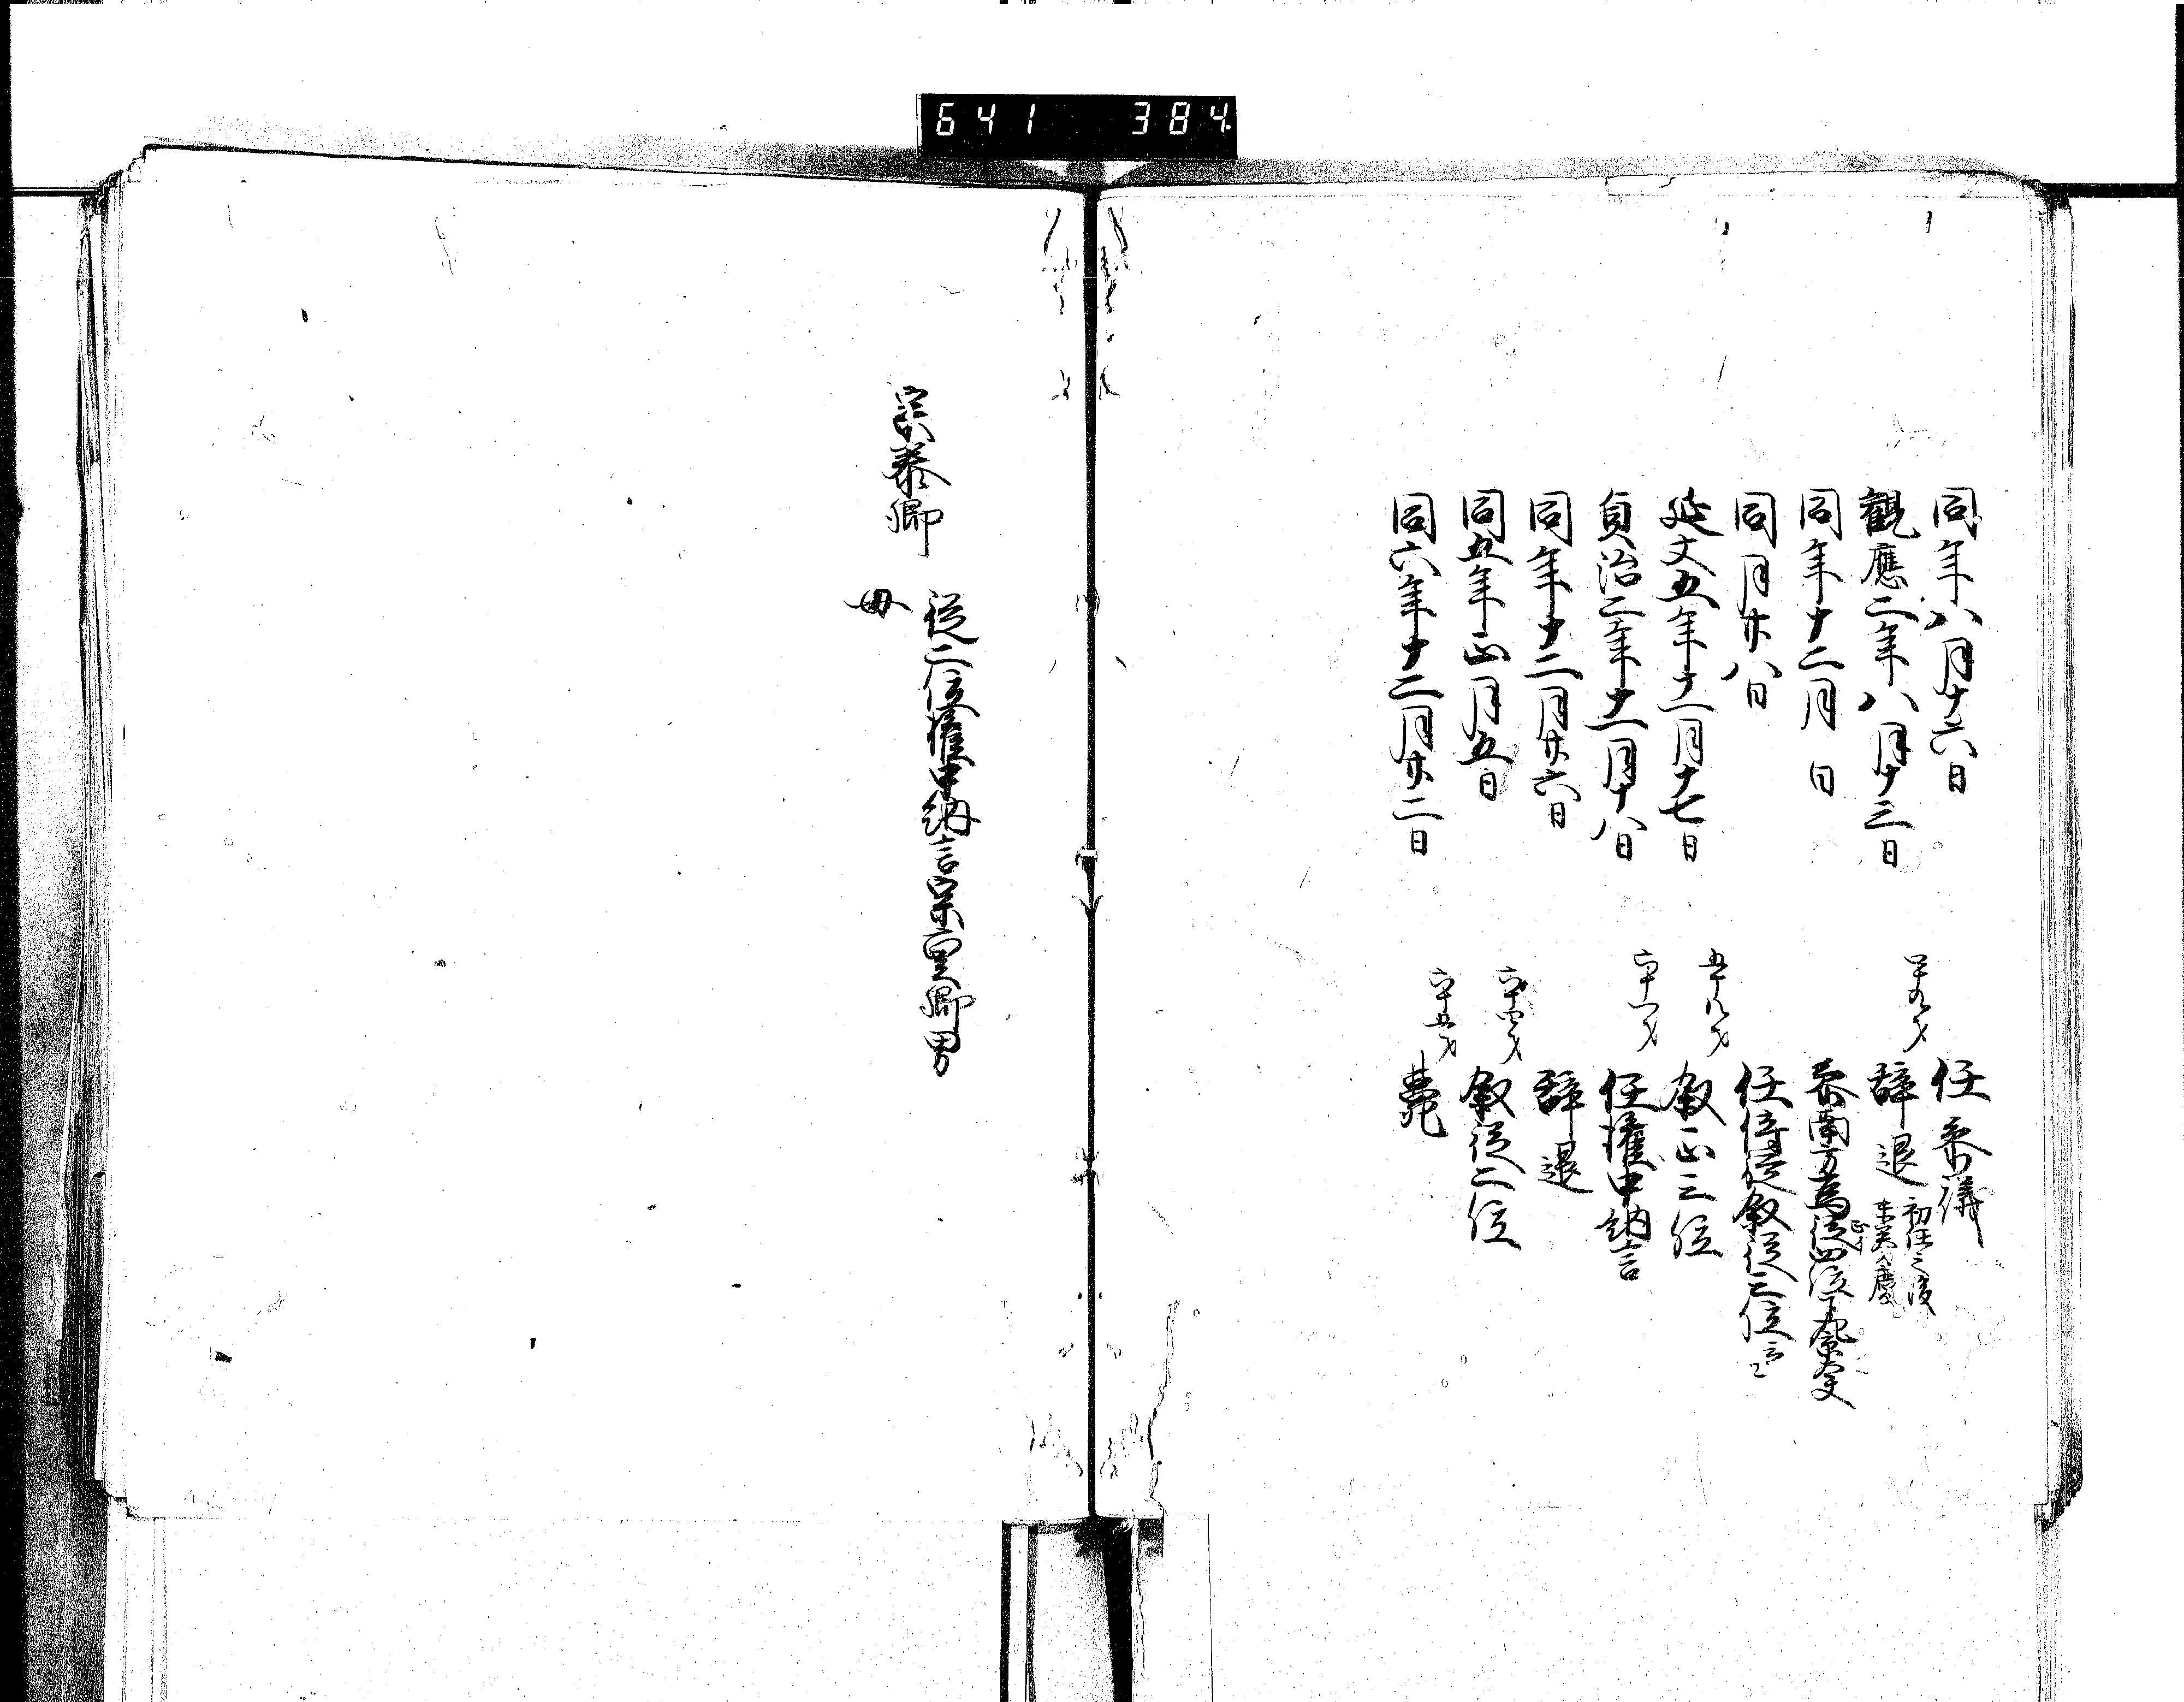 641 384
同年八月十六日 任参議
觀應二年八月十三日 四十九才 辞退 初任之後未奏慶
同年十二月 日 参南方為正四位下
同月廿八日 任 叙従三位云々
延文五年十一月十七日 五十八才 叙正三位
貞治二年十二月十八日 六十一才 任権中納言
同年十二月廿六日 辞退
同五年正月五日 六十四才 叙従二位
同六年十二月廿二日 六十五才 薨
宗泰卿 従二位權中納言宗重卿男
母